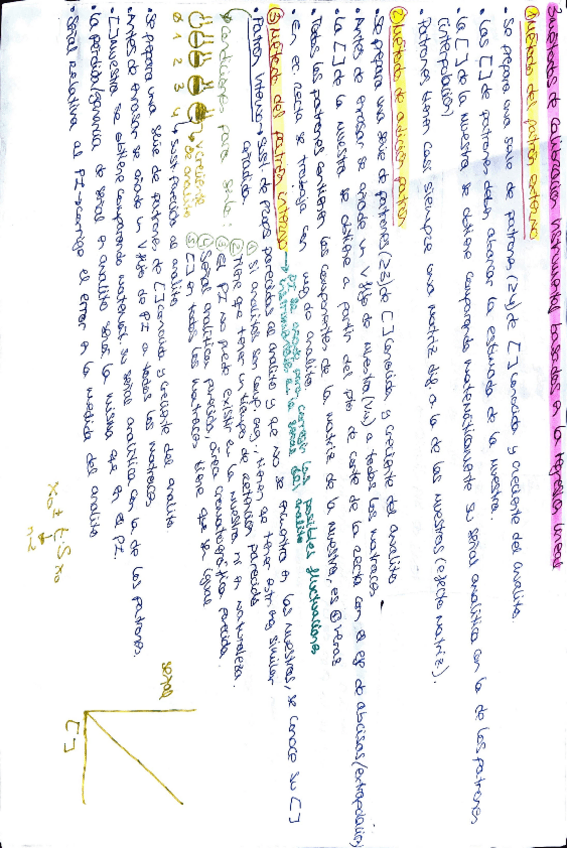 3 métodos de calibración instrumental basados en la regresión lineal
1 Método del patrón externo
• Se prepara una serie de patrones (≥4) de [ ] conocida y creciente del analito.
• Las [ ] de patrones deben abarcar la estimada de la muestra.
• La [ ] de la muestra se obtiene comparando matemáticamente su señal analítica con la de los patrones
(interpolación)
• Patrones tienen casi siempre una matriz dif a la de las muestras (efecto matriz).
2 Método de adición patrón
• Se prepara una serie de patrones (≥3) de [ ] conocida y creciente del analito
• Antes de enrasar se añade un V fijo de muestra (Vm) a todos los matraces
• La [ ] de la muestra se obtiene a partir del pto de corte de la recta con el eje de abcisas (extrapolación)
• Todos los patrones contienen los componentes de la matriz de la muestra, es
en ec. recta se trabaja con mg de analito
3 Método del patrón interno → PI se añade para corregir las posibles fluctuaciones
instrumentales en la señal del analito
• Patrón interno → sust. de props parecidas al analito y que no se encuentra en las muestras, se conoce su [ ]
añadida.
Condiciones para serlo: 1 Si analitos son comp. org.: tienen que tener estr. org similar
2 Tiene que tener un tiempo de retención parecido
3 El PI no puede existir en la muestra ni en naturaleza.
4 Señal analítica parecida, área cromatográfica parecida.
5 [ ] en todos los matraces tiene que ser igual
0 1 2 3 4
de analito
sust. parecida al analito
• Se prepara una serie de patrones de [ ] conocida y creciente del analito
• Antes de enrasar se añade un V fijo de PI a todos los matraces
• [ ] muestra se obtiene comparando matemát. su señal analítica con la de los patrones.
• La pérdida/ganancia de señal en analito será la misma que en el PI.
• Señal relativa al PI → corrige el error en la medida del analito
x₀ ± t · S x₀
n-2
señal
[ ]